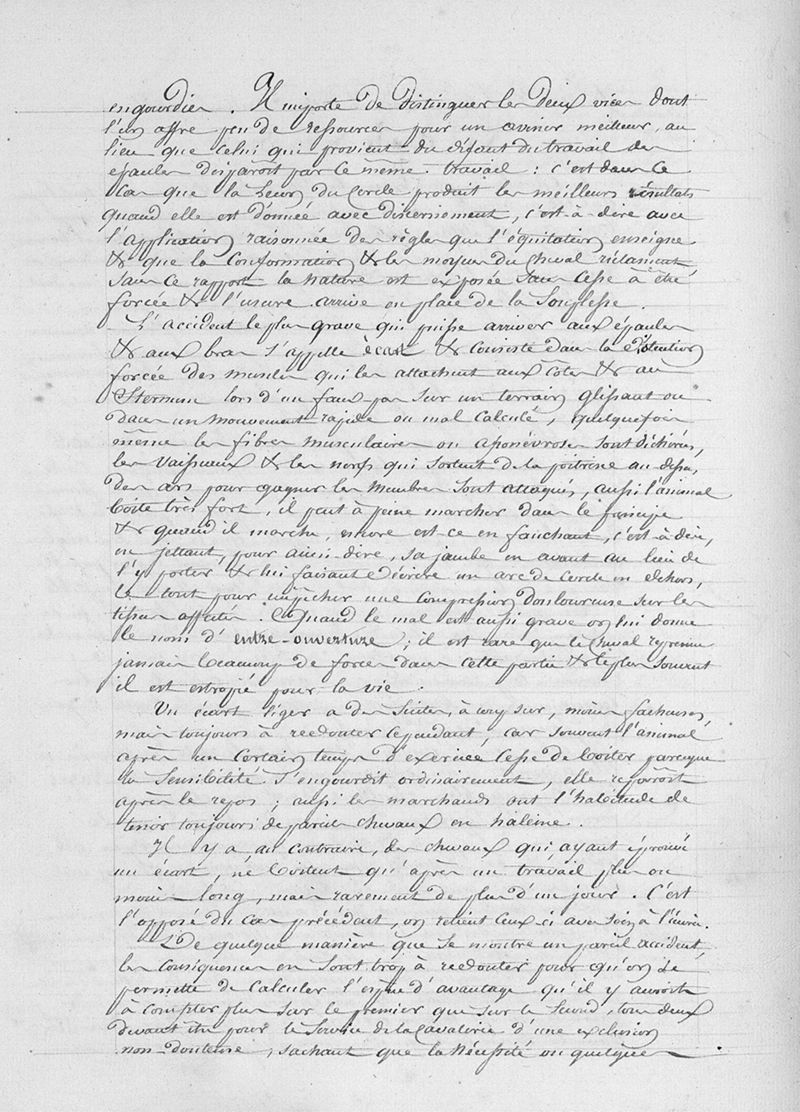 engourdies. Il importe de distinguer les deux vices dont
l'un offre peu de ressources pour un avenir meilleur, au
lieu que celui qui provient du défaut du travail des
épaules disparoit par ce même travail : c'est dans ce
cas que la leçon du cercle produit les meilleurs résultats
quand elle est donnée avec discernement, c'est-à-dire avec
l'application raisonnée des règles que l'équitation enseigne
& que la conformation & les moyens du cheval réclament
sans ce rapport la nature est exposée sans cesse à être
forcée & l'usure arrive en place de la souplesse.
L'accident le plus grave qui puisse arriver aux épaules
& aux bras s'appelle écart & consiste dans la distention
forcée des muscles qui les attachent aux côtes & au
Sternum lors d'un faux pas sur un terrain glissant ou
dans un mouvement rapide ou mal calculé, quelquefois
même les fibres musculaires ou aponévroses sont déchirées,
les vaisseaux & les nerfs qui sortent de la poitrine au dessus
des ars pour gagner les membres sont attaqués, aussi l'animal
boite très fort, il peut à peine marcher dans le principe
& quand il marche, encore est-ce en fauchant, c'est-à-dire,
en jettant, pour ainsi dire, sa jambe en avant au lieu de
l'y porter & lui faisant décrire un arc de cercle en dehors,
le tout pour empêcher une compression douloureuse sur les
tissus affectés. Quand le mal est aussi grave on lui donne
le nom d'entre-ouverture ; il est rare que le cheval reprenne
jamais beaucoup de forces dans cette partie & le plus souvent
il est estropié pour la vie.
Un écart léger a des suites, à coup sur, moins facheuses,
mais toujours à redouter cependant, car souvent l'animal
après un certain temps d'exercice cesse de boiter parceque
la sensibilité s'engourdit ordinairement, elle reparoît
après le repos ; aussi les marchands ont l'habitude de
tenir toujours de pareils chevaux en haleine.
Il y a, au contraire, des chevaux qui, ayant éprouvé
un écart, ne boitent qu'après un travail plus ou
moins long, mais rarement de plus d'un jour. C'est
l'opposé du cas précédent, on retient ceux-ci avec soin à l'écurie.
De quelque manière que se montre un pareil accident,
les conséquences en sont trop à redouter pour qu'on se
permette de calculer l'espèce d'avantage qu'il y auroit
à compter plus sur le premier que sur le second, tous deux
devant être pour le service de la Cavalerie d'une exclusion
non-douteuse, sachant que la nécessité ou quelques